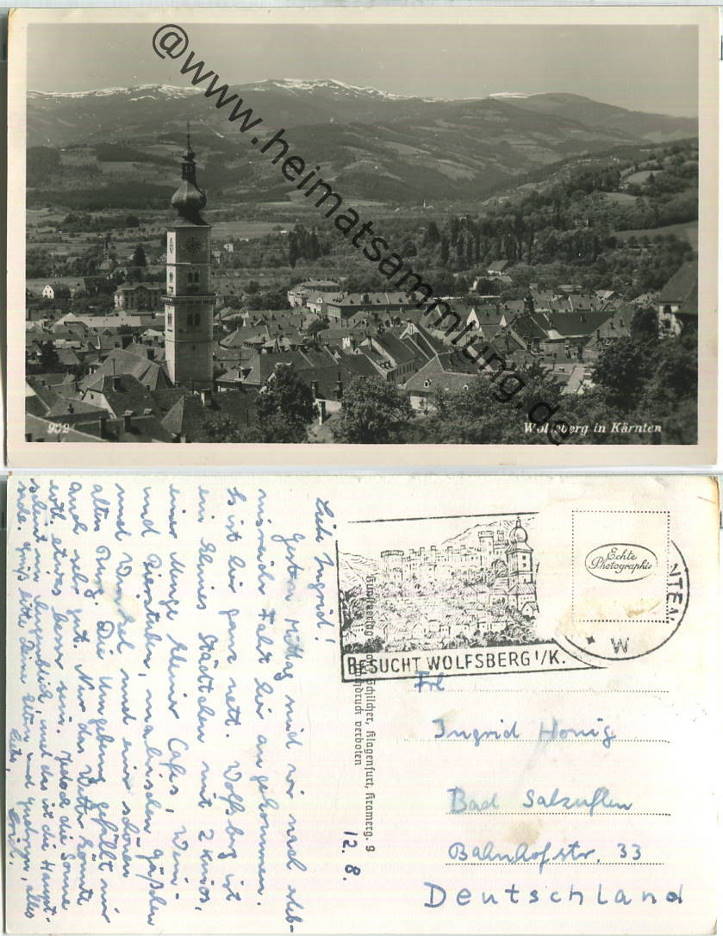 @www.heimatsammlung.de
902
Wolfsberg in Kärnten
12. 8.
Liebe Ingrid!
Gestern Mittag sind wir nach erleb-
nisreicher Fahrt hier angekommen.
Es ist hier ganz nett. Wolfsberg ist
ein kleines Städtchen mit 2 Kinos,
einer Menge kleiner Cafés, Wein-
und Bierstuben, malerischen Gäßchen
und Winkel und einer schönen
alten Burg. Die Umgebung gefällt mir
auch sehr gut. Nur das Wetter könnte
evtl. etwas besser sein. Jedoch die Sonne
scheint im Augenblick und das ist die Haupt-
sache. Grüß bitte Deine Eltern und
alles
Liebe,
BESUCHT WOLFSBERG I/K.
Echte
Photographie
NTEN
W
Schilcher, Klagenfurt, Kramerg. 9
Nachdruck verboten
Frl
Ingrid Honig
Bad Salzuflen
Bahnhofstr. 33
Deutschland